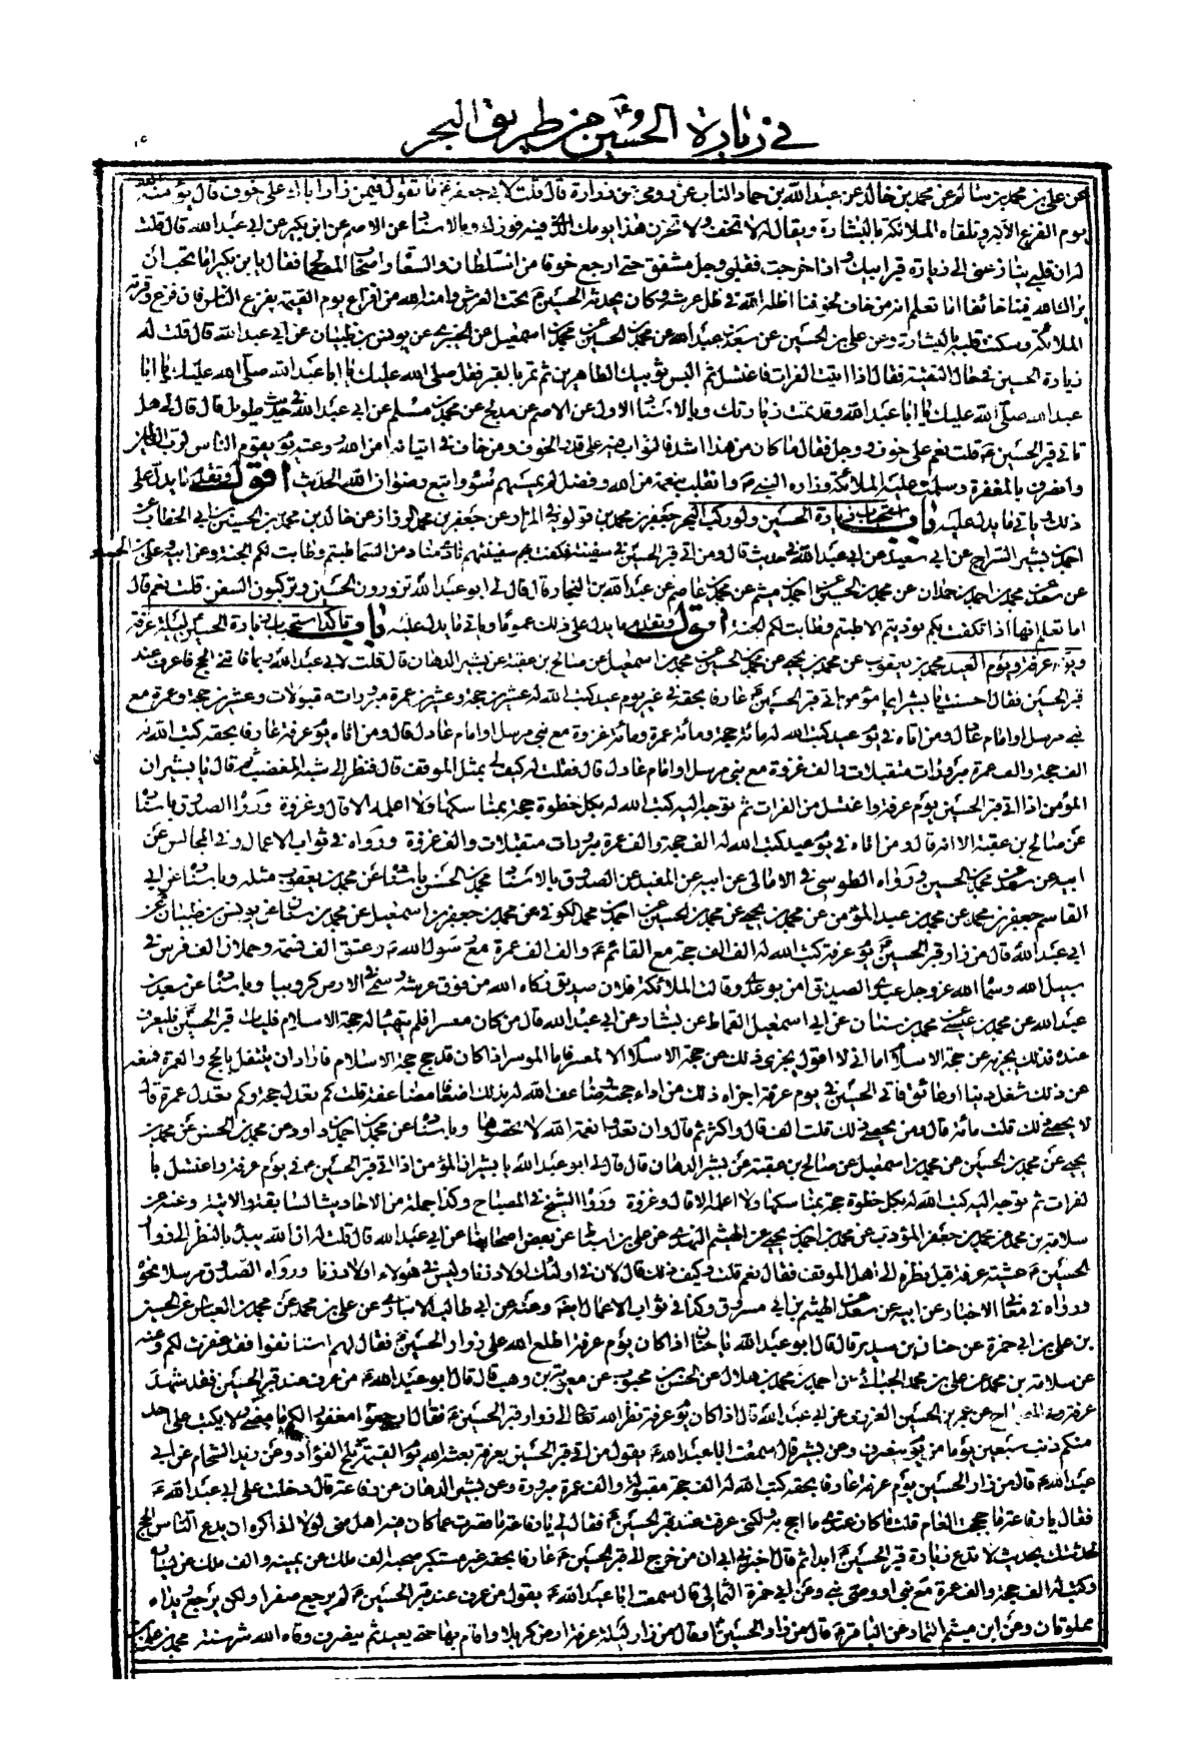 في زيارة الحسين ع من طريق البحر
عن علي بن محمد بن سالم عن محمد بن خالد عن عبد الله بن حماد عن رومي بن زرارة قال قلت لابي جعفر ع ما تقول فيمن زار اباك على خوف قال يؤمنه الله
يوم الفزع الاكبر وتلقاه الملائكة بالبشارة ويقال له لا تخف ولا تحزن هذا يومك الذي فيه فوزك وبالاسناد عن الاصم عن ابن بكير عن ابي عبد الله قال قلت
له ان قلبي ينازعني الى زيارة قبر ابيك واذا خرجت فقلبي وجل مشفق حتى ارجع خوفا من السلطان والسعاة واصحاب المسالح فقال يا بن بكير اما تحب ان
يراك الله فينا خائفا اما تعلم انه من خاف لخوفنا اظله الله في ظل عرشه وكان يحدثه الحسين ع تحت العرش وامنه الله من افزاع يوم القيمة يفزع الناس فان فزع وقرته
الملائكة وسكنت قلبه بالبشارة وعن علي بن الحسين عن سعد بن عبد الله عن محمد بن الحسين عن محمد بن اسمعيل عن الخيبري عن يونس بن ظبيان عن ابي عبد الله قال قلت له
زيارة الحسين في حال التقية فقال اذا اتيت الفرات فاغتسل ثم البس ثوبيك الطاهرين ثم تمر بالقبر فقل صلى الله عليك يا ابا عبد الله صلى الله عليك يا ابا
عبد الله صلى الله عليك يا ابا عبد الله وقد تمت زيارتك وبالاسناد الاول عن الاصم عن مدلج عن محمد بن مسلم عن ابي عبد الله في حديث طويل قال قال لي هل
تاتي قبر الحسين ع قلت نعم على خوف ووجل فقال ما كان من هذا اشد فالثواب فيه على قدر الخوف ومن خاف في اتيانه امن الله روعته يوم يقوم الناس لرب العالمين
وانصرف بالمغفرة وسلمت عليه الملائكة وزاره النبي ص وانقلب بنعمة من الله وفضل لم يمسسهم سوء واتبع رضوان الله الحديث اقول وتقدم ما يدل على
ذلك وياتي ما يدل عليه باب استحباب زيارة الحسين ولو ركب البحر جعفر بن محمد بن قولويه في المزار عن جعفر بن محمد الرزاز عن خالد بن محمد بن الحسين بن ابي الخطاب عن
احمد بن بشير السراج عن ابي سعيد عن ابي عبد الله في حديث قال ومن اتى قبر الحسين في سفينة فكفت بهم سفينتهم نادى مناد من السماء طبتم وطابت لكم الجنة وعن ابيه وعلي بن الحسين
عن سعد عن محمد بن احمد بن حمدان عن محمد بن الحسين عن احمد بن ميثم عن محمد بن عاصم عن عبد الله بن النجار قال قال لي ابو عبد الله تزورون الحسين وتركبون السفن قلت نعم قال
اما تعلم انها اذا انكفت بكم نوديتم الا طبتم وطابت لكم الجنة اقول وتقدم ما يدل على ذلك عموما وياتي ما يدل عليه باب تاكد استحباب زيارة الحسين ليلة عرفة
ويوم عرفة ويوم العيد محمد بن يعقوب عن محمد بن يحيى عن محمد بن الحسين عن محمد بن اسمعيل عن صالح بن عقبة عن بشير الدهان قال قلت لابي عبد الله ربما فاتني الحج فاعرف عند
قبر الحسين فقال احسنت يا بشير ايما مؤمن اتى قبر الحسين ع عارفا بحقه في غير يوم عيد كتب الله له عشرين حجة وعشرين عمرة مبرورات مقبولات وعشرين حجة وعمرة مع
نبي مرسل او امام عادل ومن اتاه في يوم عيد كتب الله له مائة حجة ومائة عمرة ومائة غزوة مع نبي مرسل او امام عادل قال ومن اتاه يوم عرفة عارفا بحقه كتب الله له
الف حجة والف عمرة مبرورات متقبلات والف غزوة مع نبي مرسل او امام عادل قال فقلت له كيف لي بمثل الموقف قال فنظر الي شبه المغضب ثم قال يا بشير ان
المؤمن اذا اتى قبر الحسين يوم عرفة واغتسل من الفرات ثم توجه اليه كتب الله له بكل خطوة حجة بمناسكها ولا اعلمه الا قال وغزوة ورواه الصدوق باسناده
عن صالح بن عقبة الا انه قال ومن اتاه في يوم عيد كتب الله له الف حجة والف عمرة مبرورات متقبلات والف غزوة ورواه في ثواب الاعمال وفي المجالس عن
ابيه عن سعد عن محمد بن الحسين ورواه الطوسي في الامالي عن ابيه عن المفيد عن الصدوق بالاسناد محمد بن الحسن باسناده عن محمد بن يعقوب مثله وباسناده عن ابي
القاسم جعفر بن محمد عن محمد بن عبد المؤمن عن محمد بن يحيى عن محمد بن الحسين عن احمد بن محمد الكوفي عن محمد بن جعفر بن اسمعيل عن محمد بن سنان عن يونس بن ظبيان عن
ابي عبد الله قال من زار قبر الحسين يوم عرفة كتب الله له الف الف حجة مع القائم ع والف الف عمرة مع رسول الله ص وعتق الف نسمة وحملان الف فرس في
سبيل الله وسماه الله عز وجل عبدي الصديق امن بوعدي وقالت الملائكة فلان صديق زكاه الله من فوق عرشه وسمي في الارض كروبيا وباسناده عن سعد بن
عبد الله عن محمد بن عيسى عن محمد بن سنان عن ابي اسمعيل القماط عن بشار عن ابي عبد الله قال من كان معسرا فلم يتهيا له حجة الاسلام فليات قبر الحسين فليعرف
عنده فذلك يجزيه عن حجة الاسلام اما اني لا اقول يجزي ذلك عن حجة الاسلام الا لمعسر فاما الموسر اذا كان قد حج حجة الاسلام فاراد ان يتنفل بالحج والعمرة فمنعه
عن ذلك شغل دنيا او عائق فاتى الحسين في يوم عرفة اجزاه ذلك من اداء حجته وضاعف الله له بذلك اضعافا مضاعفة قلت كم تعدل حجة وكم تعدل عمرة قال
لا يحصى ذلك قلت مائة قال ومن يحصي ذلك قلت الف قال واكثر ثم قال وان تعدوا نعمة الله لا تحصوها وباسناده عن محمد بن احمد بن داود عن محمد بن الحسن عن محمد بن
يحيى عن محمد بن الحسين عن محمد بن اسمعيل عن صالح بن عقبة عن بشير الدهان قال قال لي ابو عبد الله يا بشير ان المؤمن اذا اتى قبر الحسين ع في يوم عرفة واغتسل با
لفرات ثم توجه اليه كتب الله له بكل خطوة حجة بمناسكها ولا اعلمه الا قال وغزوة ورواه الشيخ في المصباح وكذا جملة من الاحاديث السابقة والاتية وعنه عن
سلامة بن محمد عن محمد بن جعفر المؤدب عن محمد بن احمد بن يحيى عن الهيثم النهدي عن علي بن اسباط عن بعض اصحابنا عن ابي عبد الله قال قلت له ان الله يبدأ بالنظر الى زوار
الحسين ع عشية عرفة قبل نظره الى اهل الموقف فقال نعم قلت وكيف ذلك قال لان في اولئك اولاد زنا وليس في هؤلاء اولاد زنا ورواه الصدوق مرسلا نحوه
ورواه في معاني الاخبار عن ابيه عن سعد عن الهيثم بن ابي مسروق وكذا في ثواب الاعمال وعنه عن ابي طالب الانباري عن علي بن محمد عن محمد بن العباس عن الحسن
بن علي بن ابي حمزة عن حنان بن سدير قال قال ابو عبد الله يا حنان اذا كان يوم عرفة اطلع الله على زوار الحسين ع فقال لهم استانفوا فقد غفرت لكم وعنه
عن سلامة بن محمد عن علي بن محمد الجبائي عن احمد بن محمد بن هلال عن الحسن بن محبوب عن معوية بن وهب قال قال ابو عبد الله ع من عرف عند قبر الحسين فقد شهد
عرفة عن عمر بن الحسين العزرمي عن ابي عبد الله قال اذا كان يوم عرفة نظر الله تعالى الى زوار قبر الحسين ع فقال ارجعوا مغفورا لكم ما مضى ولا يكتب على احد
منكم ذنب سبعين يوما من يوم ينصرف وعن بشير قال سمعت ابا عبد الله ع يقول من اتى قبر الحسين بعرفة بعثه الله يوم القيمة ثلج الفؤاد وعن زيد الشحام عن ابي
عبد الله ع قال من زار الحسين يوم عرفة عارفا بحقه كتب الله له الف حجة مقبولة والف عمرة مبرورة وعن بشير الدهان عن رفاعة قال دخلت على ابي عبد الله ع
فقال يا رفاعة اما حججت العام قلت ما كان عندي ما احج به ولكني عرفت عند قبر الحسين ع فقال لي يا رفاعة ما قصرت عما كان فيه اهل منى لولا اني اكره ان يدع الناس الحج
لحدثتك بحديث لا تدع زيارة قبر الحسين ع ابدا ثم قال اخبرني ابي ان من خرج الى قبر الحسين ع عارفا بحقه غير مستكبر صحبه الف ملك عن يمينه والف ملك عن يساره
وكتب له الف حجة والف عمرة مع نبي او وصي نبي وعن ابي حمزة الثمالي قال سمعت ابا عبد الله ع يقول من عرف عند قبر الحسين ع لم يرجع صفرا ولكن يرجع ويداه
مملوتان وعن ابن ميثم التمار عن الباقر ع قال من زار الحسين ع او قال من زار ليلة عرفة ارض كربلا واقام بها حتى يعيد ثم ينصرف وقاه الله شر سنته محمد بن علي بن